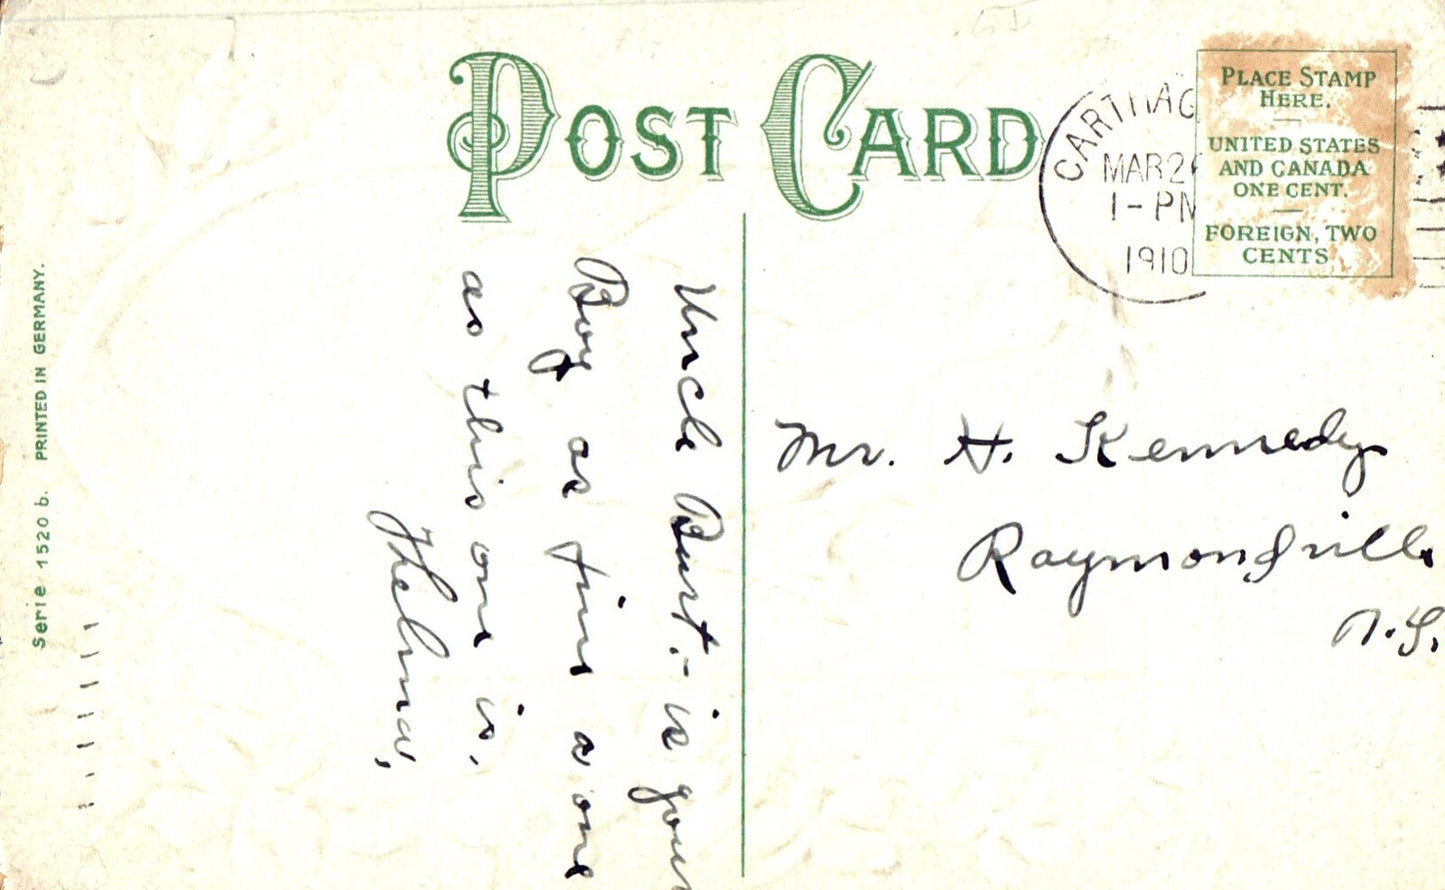 POST CARD
CARTHAG
MAR 26
1-PM
1910
PLACE STAMP
HERE.
UNITED STATES
AND CANADA
ONE CENT.
FOREIGN, TWO
CENTS
Uncle Burt.- is your
Boy as fine a one
as this one is.
Thelma,
Mr. H. Kennedy
Raymondville
N.Y.
Serie 1520 b. PRINTED IN GERMANY.